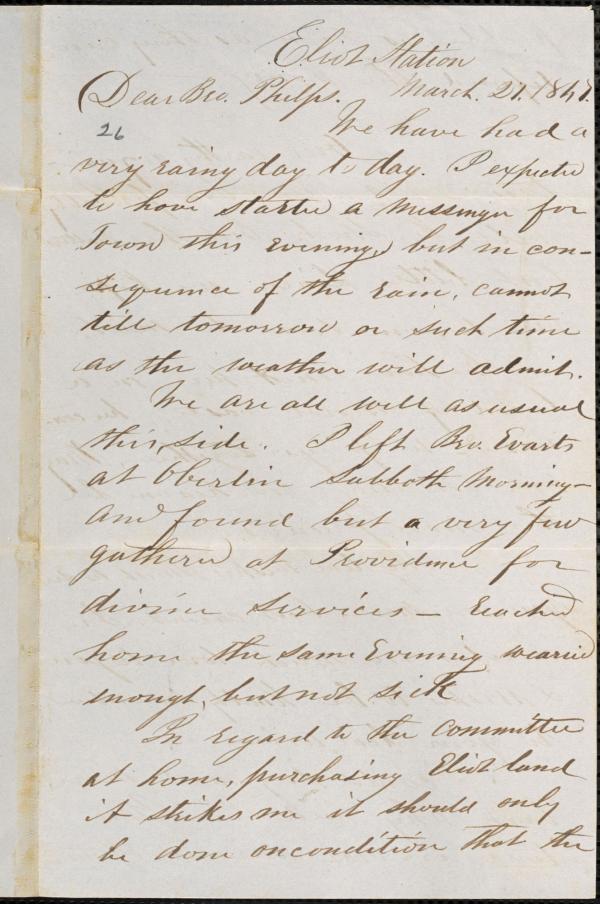 Eliot Station
Dear Bro. Phelps. March. 21. 1847.
26
We have had a
very rainy day to day. I expected
to have started a messinger for
Town this evening, but in con-
sequence of the rain, cannot
till tomorrow or such time
as the weather will admit.
We are all well as usual
this side. I left Bro. Evarts
at Oberlin Sabboth Morning-
and found but a very few
gathered at Providence for
divine services - Reached
home the same Evening wearied
enough, but not sick
In regard to the committee
at home, purchasing Eliot land
it strikes me it should only
be done on condition that the